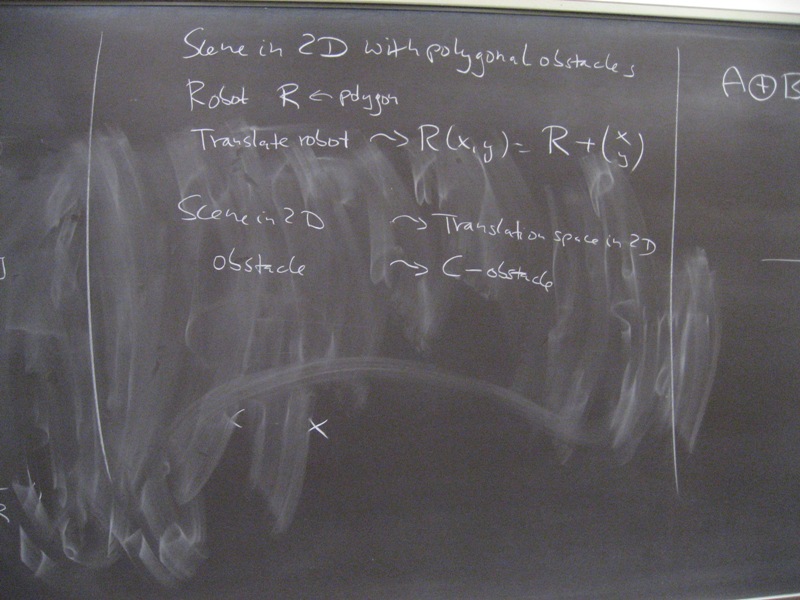 Scene in 2D with polygonal obstacles
Robot R ← polygon
Translate robot ⤳ R(x,y) = R + (x y)
Scene in 2D ⤳ Translation space in 2D
obstacle ⤳ C-obstacle
x
A⊕B